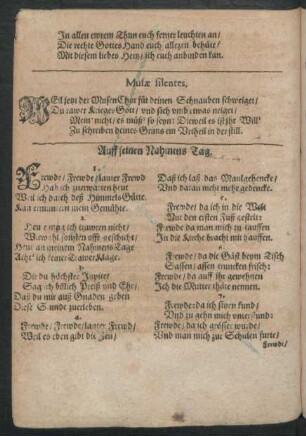 In allen ewrem Thun euch ferner leuchten an/
Die rechte Gottes Hand euch allezeit behüte/
Mit diesem liebes Hertz/ ich euch anbinden kan.
Musæ silentes,
Weil jetzt der Musen Chor für deinen Schnauben schweiget/
Du rawer Krieges Gott/ und sich umb etwas neiget/
Mein nicht/ es müß so seyn: Dieweil es ist ihr Will'
Zu schreiben deines Graus ein Urtheil in der still.
Auff seinen Nahmens Tag.
1.
Frewde/ Frewde/ lauter Frewd
Hab ich zuerwarten heut
Weil ich durch deß Himmels-Güte
Kan ermuntern mein Gemühte.
2.
Heut mag ich trawren nicht/
Wiewohl sonsten offt geschicht/
Heut an meinem Nahmens-Tage
Acht' ich keiner Trawer-Klage.
3.
Dir du höchster Jupiter/
Sag ich billich Preiß und Ehr/
Daß du mir auß Gnaden geben
Diese Stunde zuerleben.
4.
Frewde/ Frewde/ lauter Frewd/
Weil es eben gibt die Zeit/
Daß ich laß das Maulgehencke/
Und daran nicht mehr gedencke.
5.
Frewde/ da ich in die Welt
Mit den ersten Fuß gestelt:
Frewde da man mich zu tauffen
In die Kirche bracht mit hauffen.
6.
Frewde/ da die Gäst beym Tisch
Sassen/ assen truncken frisch:
Frewde/ da auff ihr gewehren
Ich die Mutter thäte nennen.
7.
Frewde: da ich stehen kund/
Und zu gehn mich unterstund:
Frewde/ da ich grösser wurde/
Und man mich zur Schulen furte/
Frewde/